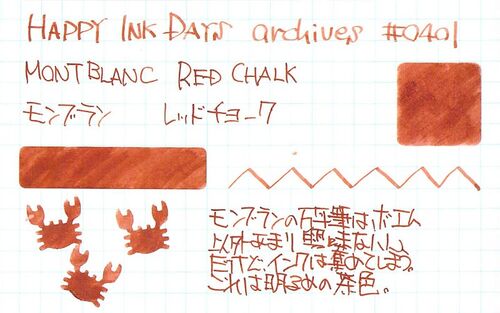 HAPPY INK DAYS archives #0401
MONTBLANC RED CHALK
モンブラン レッドチョーク
モンブランの万年筆は、ボエム
以外あまり興味ないん
だけど、インクは集めてしまう。
これは明るめの茶色。